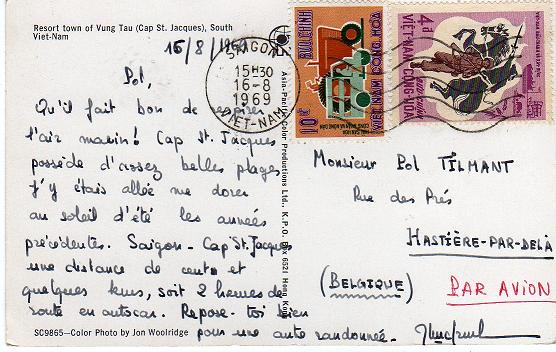 Resort town of Vung Tau (Cap St. Jacques), South
Viet-Nam
15/8/1969
Pol,
Qu'il fait bon de
l'air marin! Cap St. Jacques
possède d'assez belles plages
J'y étais allée me dorer
au soleil d'été les années
précédentes. Saigon - Cap St. Jacques
une distance de cent et
quelques kms, soit 2 heures de
route en autocar. Repose-toi bien
pour une autre randonnée.
SC9865—Color Photo by Jon Woolridge
Asia-Pacific Color Productions Ltd., K.P.O. Box 6521 Hong Kong
SAIGON
15H30
16-8
1969
VIET-NAM
BƯU CHÍNH
VIỆT NAM CỘNG HÒA
10đ
4đ
VIỆT-NAM CỘNG-HÒA
Monsieur Pol TILMANT
Rue des Prés
HASTIÈRE-PAR-DELÀ
(BELGIQUE)
PAR AVION